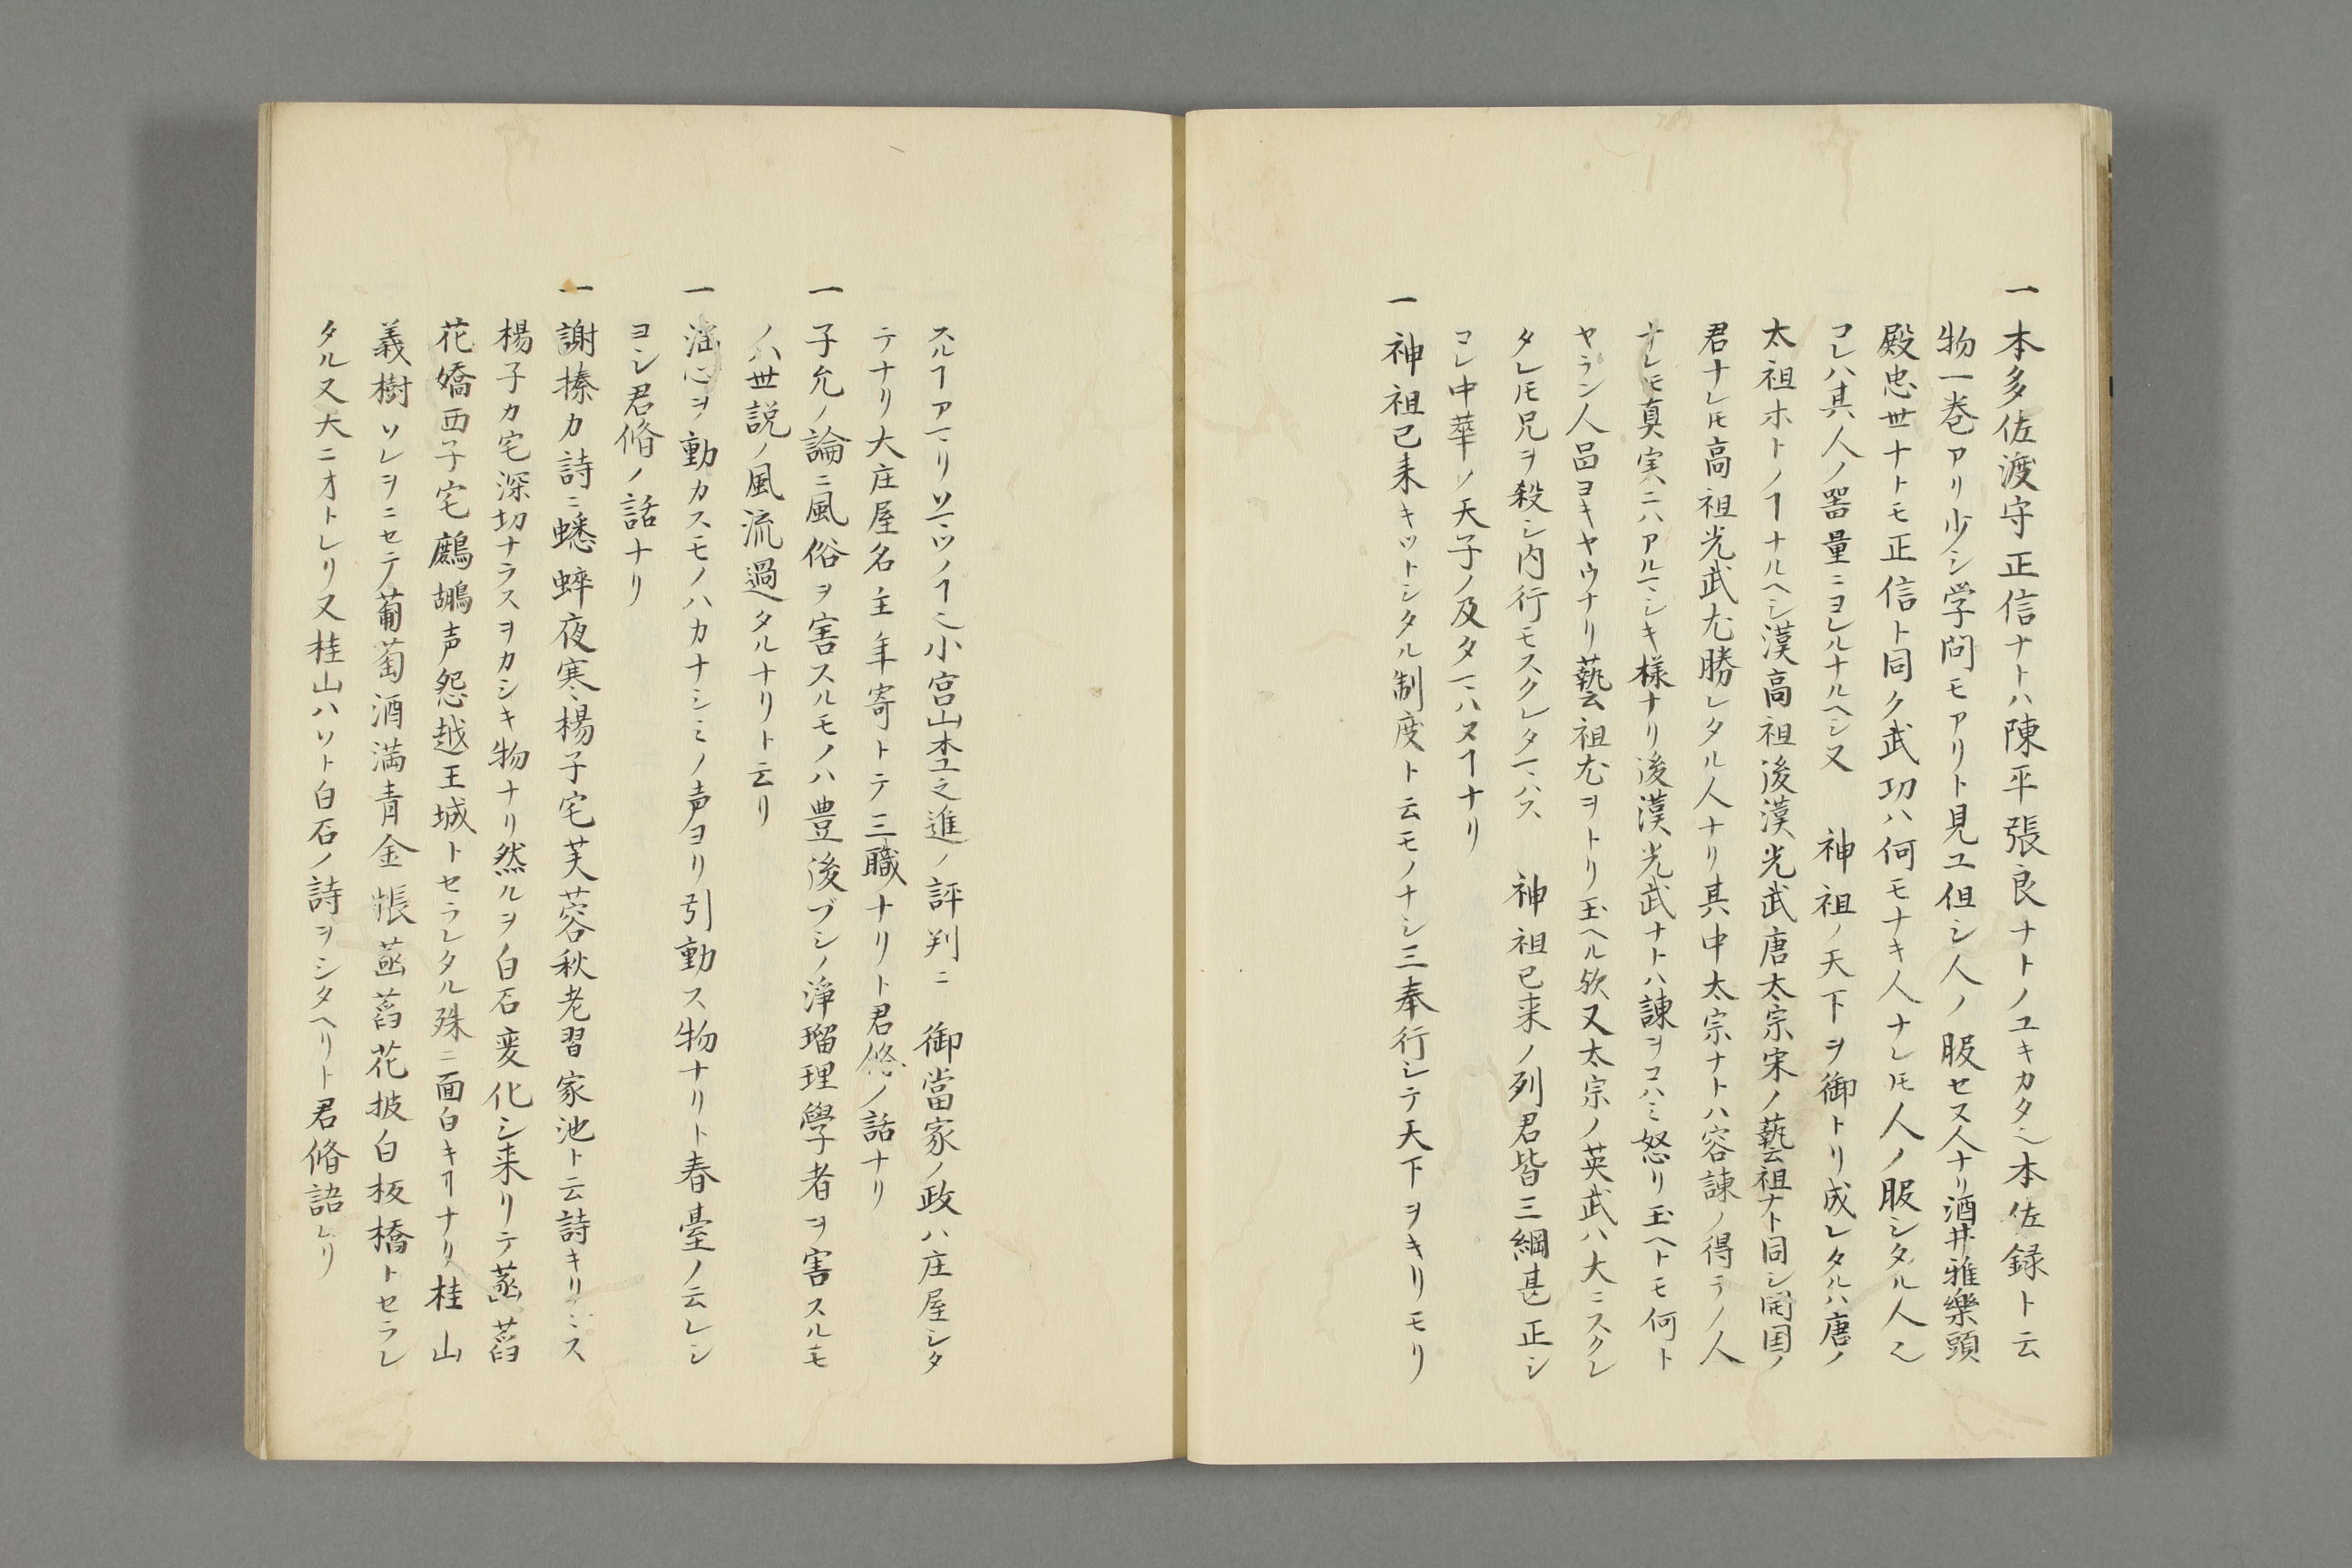 一本多佐渡守正信ナトハ陳平張良ナトノユキカタ也本佐録ト云
物一巻アリ少シ学問モアリト見ユ但シ人ノ服セヌ人ナリ酒井雅樂頭
殿忠世ナトモ正信ト同ク武功ハ何モナキ人ナレ𪜈人ノ服シタル人也
コレハ其人ノ器量ニヨレルナルヘシ又　神祖ノ天下ヲ御トリ成レタルハ唐ノ
太祖ホトノヿナルヘシ漢高祖後漢光武唐太宗宋ノ藝祖ナト同シ開国ノ
君ナレ𪜈高祖光武尤勝レタル人ナリ其中太宗ナトハ容諫ノ得テノ人
ナレ𪜈真実ニハアルマシキ様ナリ後漢光武ナトハ諫ヲコハミ怒リ玉ヘトモ何ト
ヤラン人品ヨキヤウナリ藝祖尤ヲトリ玉ヘル欤又太宗ノ英武ハ大ニスクレ
タレ𪜈兄ヲ殺シ内行モスクレタマハス　神祖已来ノ列君皆三綱甚正シ
コレ中華ノ天子ノ及タマハヌヿナリ
一神祖已来キツトシタル制度ト云モノナシ三奉行シテ天下ヲキリモリ
スルヿアマリソマツノヿ也小宮山杢之進ノ評判ニ　御當家ノ政ハ庄屋シタ
テナリ大庄屋名主年寄トテ三職ナリト君脩ノ話ナリ
一子允ノ論ニ風俗ヲ害スルモノハ豊後ブシノ浄瑠理學者ヲ害スルモ
ノハ世説ノ風流過タルナリト云リ
一淫心ヲ動カスモノハカナシミノ声ヨリ引動ス物ナリト春臺ノ云レシ
ヨシ君脩ノ話ナリ
一謝榛カ詩ニ蟋蟀夜寒楊子宅芙蓉秋老習家池ト云詩キリ〳〵ス
楊子カ宅深切ナラスヲカシキ物ナリ然ルヲ白石変化シ来リテ菡萏
花嬌西子宅鷓鴣声怨越王城トセラレタル殊ニ面白キヿナリ桂山
義樹ソレヲニセテ葡萄酒満青金帳菡萏花披白板橋トセラレ
タル又大ニオトレリ又桂山ハソト白石ノ詩ヲシタヘリト君脩語レリ